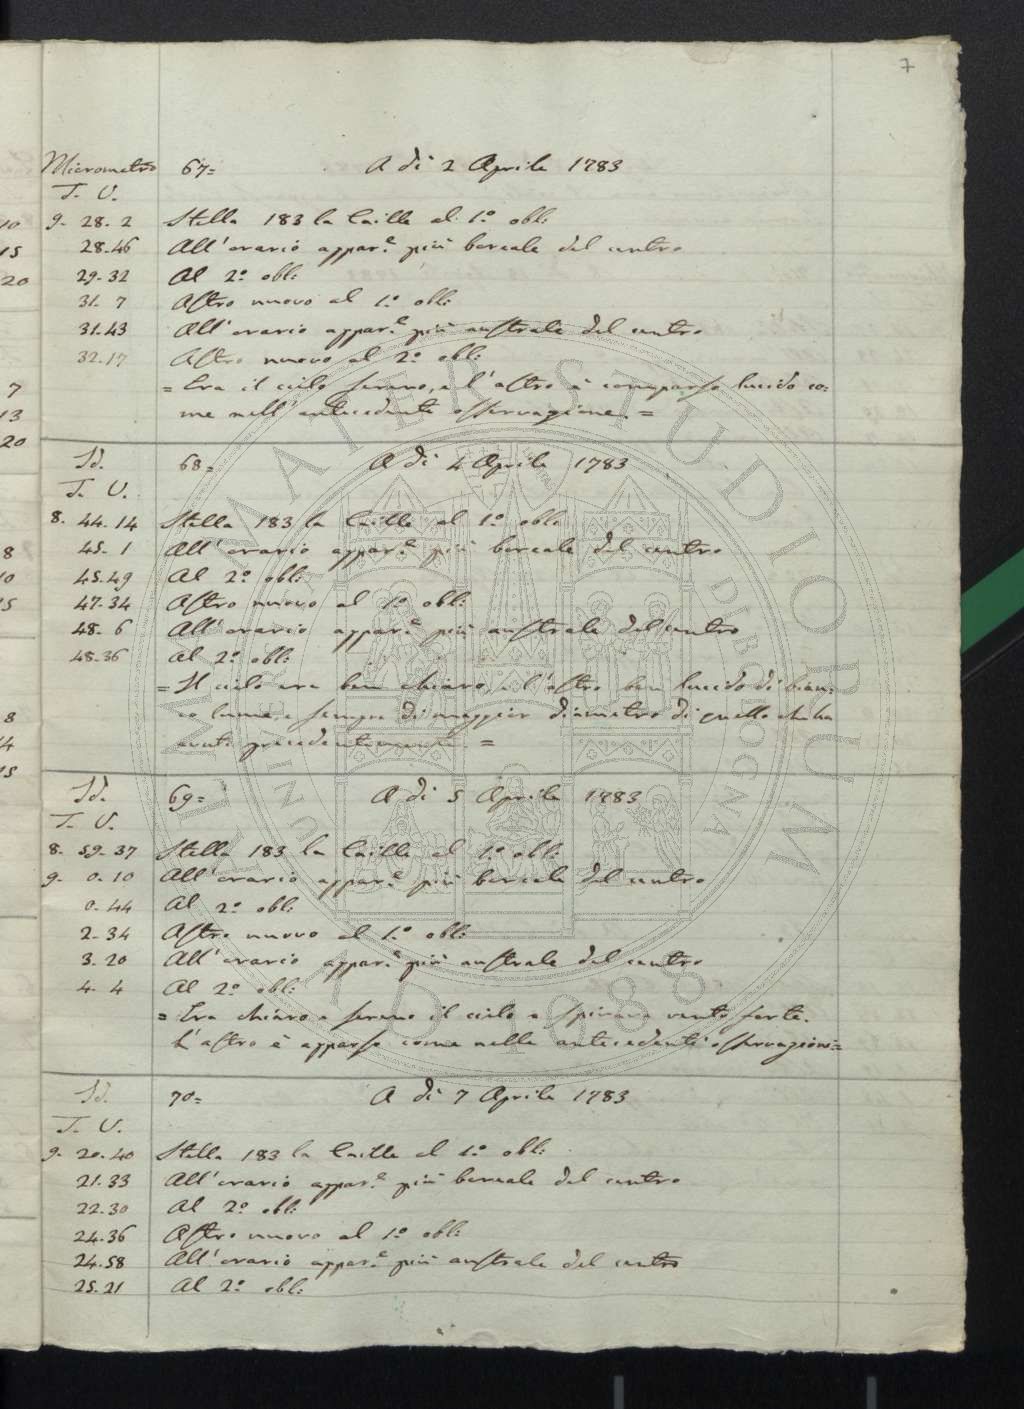 7
Micrometro 67= A di 2 Aprile 1783
T. V.
9. 28. 2 Stella 183 la Caille al 1.º obl:
28.46 All'orario appar.e più boreale del centro
29.32 Al 2º obl:
31. 7 Astro nuovo al 1.º obl:
31.43 All'orario appar.e più australe del centro
32.17 Astro nuovo al 2º obl:
= Era il cielo sereno, e l'astro è comparso lucido co=
me nell'antecedente osservazione. =
Id. 68= A di 4 Aprile 1783
T. V.
8. 44.14 Stella 183 la Caille al 1º obl:
45. 1 All'orario appar.e più boreale del centro
45.49 Al 2º obl:
47.34 Astro nuovo al 1º obl:
48. 6 All'orario appar.e più australe del centro
48.36 Al 2º obl:
= Il cielo era ben chiaro, e l'astro ben lucido di bian=
co lume, e sempre di maggior diametro di quello che ha
avuti precedentemente. =
Id. 69= A di 5 Aprile 1783
T. V.
8. 59.37 Stella 183 la Caille al 1.º obl:
9. 0.10 All'orario appar.e più boreale del centro
0.44 Al 2º obl:
2.34 Astro nuovo al 1.º obl:
3.20 All'orario appar.e più australe del centro
4. 4 Al 2º obl:
= Era chiaro e sereno il cielo e spirava vento forte.
L'astro è apparso come nelle antecedenti osservazioni=
Id. 70= A di 7 Aprile 1783
T. V.
9. 20.40 Stella 183 la Caille al 1.º obl:
21.33 All'orario appar.e più boreale del centro
22.30 Al 2º obl:
24.36 Astro nuovo al 1º obl:
24.58 All'orario appar.e più australe del centro
25.21 Al 2º obl:
10
15
20
7
13
20
8
10
15
8
14
15
ALMA MATER STUDIORUM
A.D. 1088